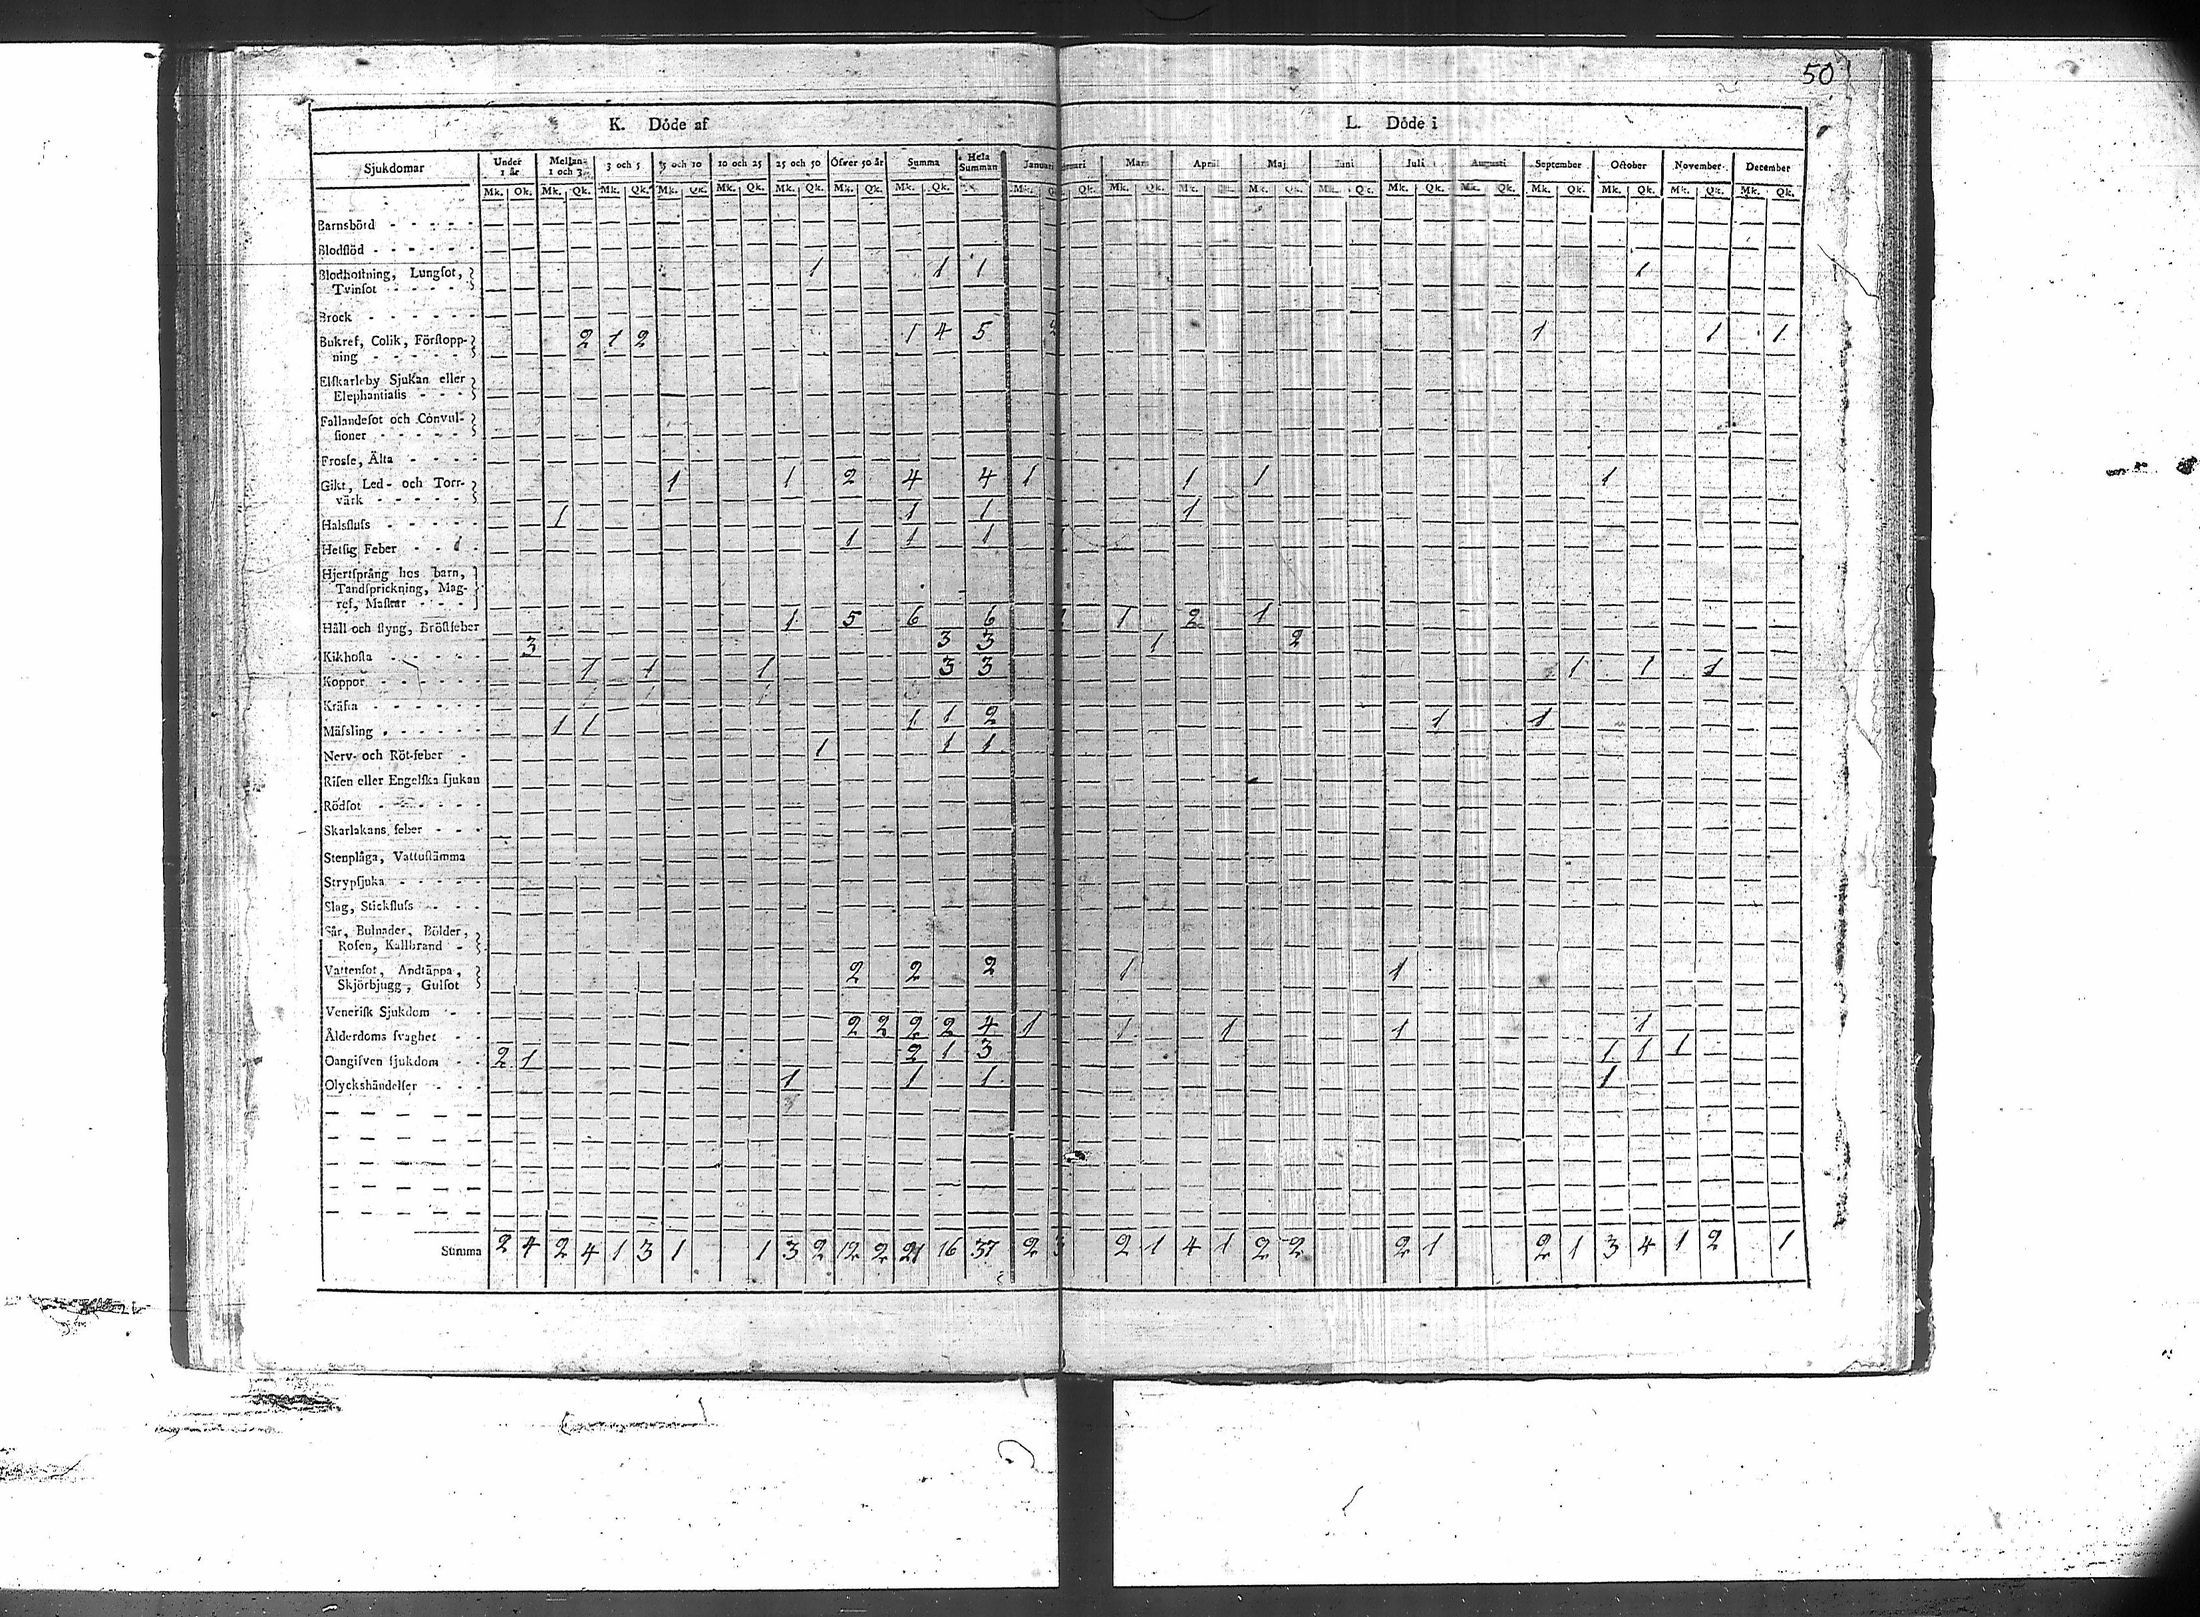 50
K. Döde af
L. Döde i
Sjukdomar | Under 1 år | Mellan 1 och 3 | 3 och 5 | 5 och 10 | 10 och 25 | 25 och 50 | Öfver 50 år | Summa | Hela Summan | Januari | Mars | April | Maj | Juni | Juli | Augusti | September | October | November | December
Mk. Qk. Mk. Qk. Mk. Qk. Mk. Qk. Mk. Qk. Mk. Qk. Mk. Qk. Mk. Qk. Mk. Qk. Mk. Qk. Mk. Mk. Qk. Mk. Qk. Mk. Qk. Mk. Qk. Mk. Qk. Mk. Qk. Mk. Qk. Mk. Qk.
Barnsbörd
Blodflöd
Blodhostning, Lungsot, 1 1 1 1
Tvinsot
Brock
Bukref, Colik, Förstopp- 2 1 2 1 4 5 2 1 1 1
ning
Elfkarleby Sjukan eller
Elephantiasis
Fallandesot och Convul-
sioner
Frossa, Älta
Gikt, Led- och Torr- 1 1 2 4 4 1 1 1 1
värk
Halsfluss 1 1 1 1
Hetsig Feber 1 1 1
Hjertsprång hos barn,
Tandsprickning, Mag-
ref, Maskar
Håll och styng, Bröstfeber 1 5 6 6 1 2 1
Kikhosta 3 3 3 1 2
Koppor 1 1 1 3 3 1 1 1
Kräfta
Mässling 1 1 1 1 2 1 1
Nerv- och Röt-feber 1 1 1
Risen eller Engelska sjukan
Rödsot
Skarlakans feber
Stenplåga, Vattustämma
Strypsjuka
Slag, Stickfluss
Sår, Bulnader, Bölder,
Rosen, Kallbrand
Vattensot, Andtäppa, 2 2 2 1 1
Skjörbjugg, Gulsot
Venerisk Sjukdom
Ålderdoms svaghet 2 2 2 2 4 1 1 1 1 1
Oangifven sjukdom 2 1 2 1 3 1 1 1
Olyckshändelser 1 1 1 1
Summa 2 4 2 4 1 3 1 1 3 2 12 2 21 16 37 2 3 2 1 4 1 2 2 2 1 2 1 3 4 1 2 1